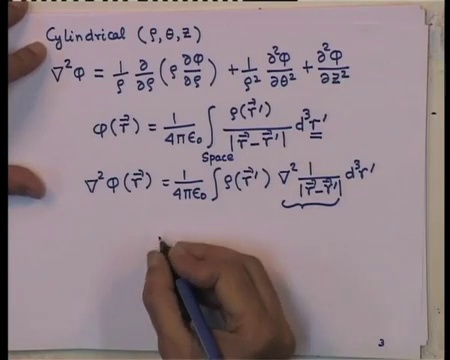 Cylindrical (ρ, θ, z)
∇²φ = 1/ρ ∂/∂ρ (ρ ∂φ/∂ρ) + 1/ρ² ∂²φ/∂θ² + ∂²φ/∂z²
φ(r⃗) = 1/4πε₀ ∫ ρ(r⃗′)/|r⃗-r⃗′| d³r′
Space
∇²φ(r⃗) = 1/4πε₀ ∫ ρ(r⃗′) ∇² 1/|r⃗-r⃗′| d³r′
3